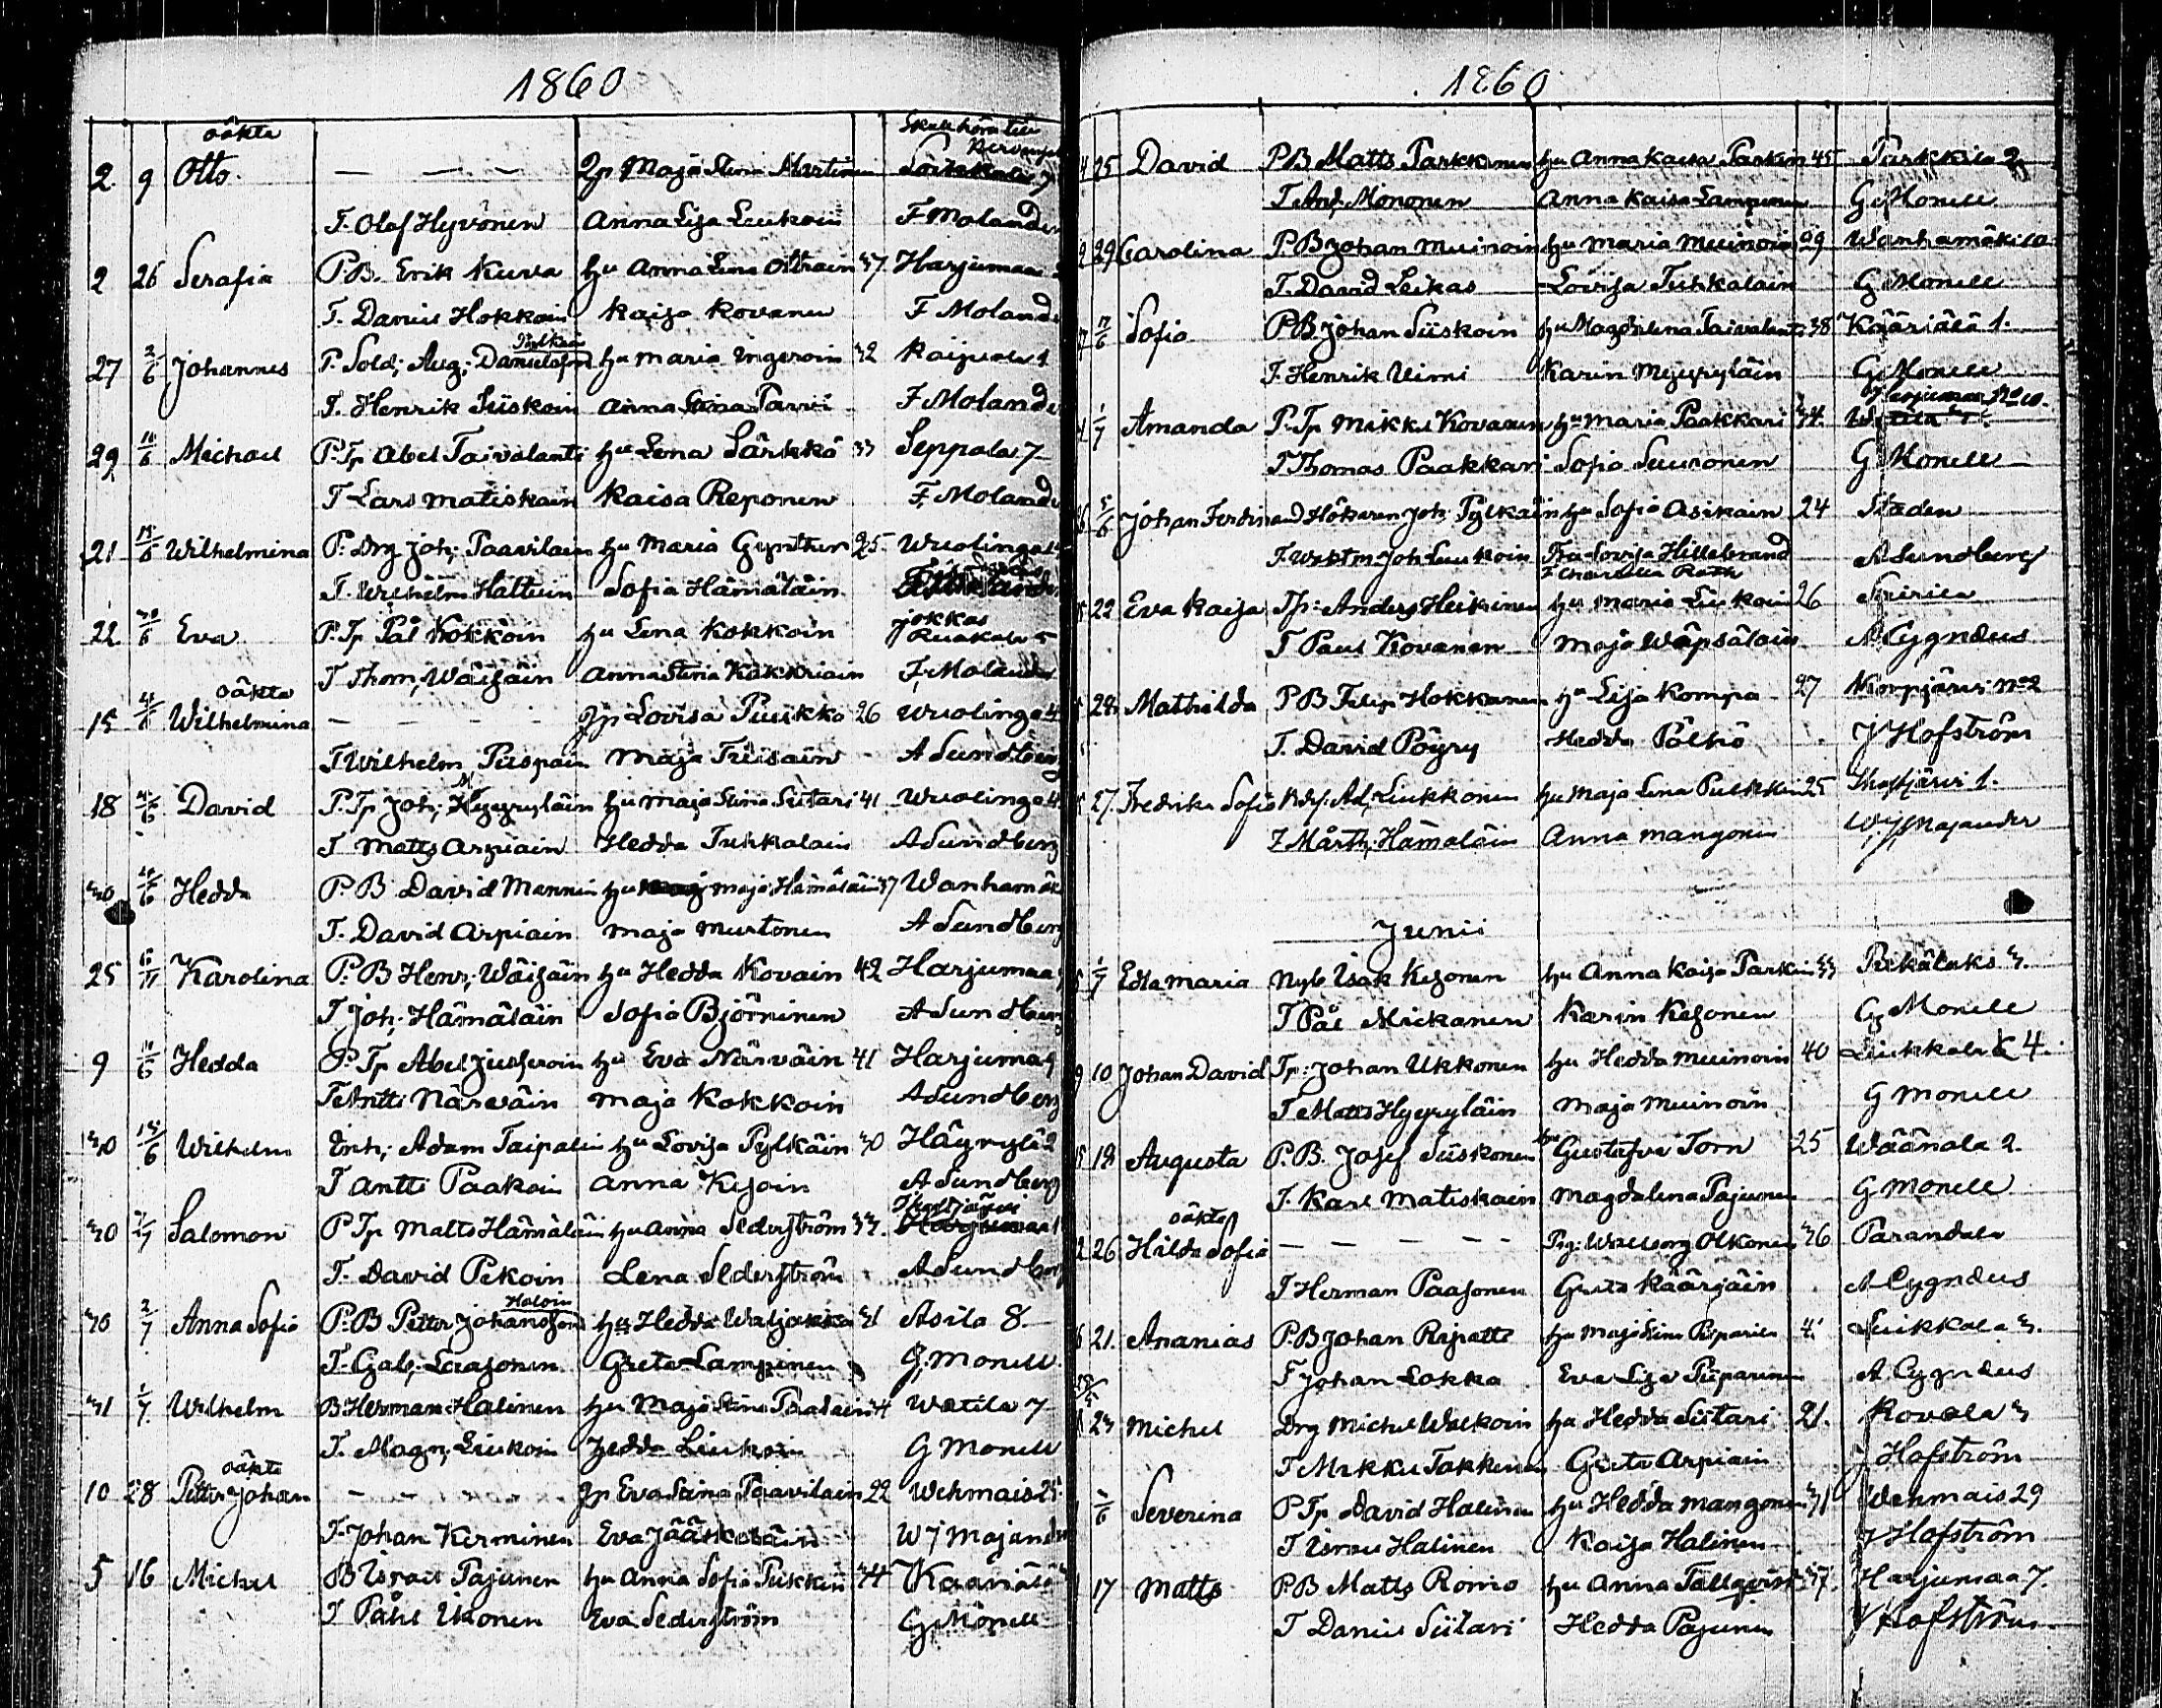 1860
oäkta
Skall höra till
2 9 Otto — — — Qp Maja Stina Martinen
T. Olof Hyvönen Anna Lisa Liukoin F Molander
2 26 Serafia P.B. Erik Kurva hu Anna Lena 37 Harjumaa
T. Daniel Hokkain Kaisa Kovanen F Molander
27 2/6 Johannes P. Sold; Aug; Danielsson hu Maria Ingeroin 32
T. Henrik Siiskoin Anna Stina Parvi F Molander
29 Michael P. Tp Abel Taivalanti hu Lena Särkkä 33 Seppala 7
T Lars Matiskain Kaisa Reponen F. Molander
21 Wilhelmina P. Drg Joh; Paavilain hu Maria Gynther 25 Wuolinga
T. Wilhelm Hattuin Sofia Hämäläin
22 Eva P. Tp Pål Kokkoin hu Lena Kokkoin
T Thom; Wäisäin Anna Stina F. Molander
oäkta
15 Wilhelmina — — — Qp Lovisa Puukko 26 Wuolinga 4
T Wilhelm Piispain Maja A Sundberg
18 David P. Tp Joh; Hyyryläin hu Maja Stina Siitari 41 Wuolinga 4
T Matts Arpiain Hedda Tuhkalain A Sundberg
30 Hedda P. B. David Mannin hu Maja Hämäläin 37 Wanhamäk
T. David Arpiain Maja Murtonen A Sundberg
25 Karolina P. B Henr; Wäisäin hu Hedda Kovain 42 Harjumaa
T Joh; Hämäläin Sofia Björninen A Sundberg
9 Hedda P. Tp Abel hu Eva Närväin 41 Harjumaa
T Antti Närväin Maja Kokkoin A Sundberg
30 Wilhelm Inh; Adam Taipalin hu Lovisa Pylkäin 30 Häyrylä 2
T Antti Paakoin Anna Kejoin A Sundberg
30 Salomon P Tp Matts Hämäläin hu Anna Sederström 33
T. David Pekoin Lena Sederström A Sundberg
Haloin
30 2/7 Anna Sofia P. B Petter Johansson hu Hedda Waljakka 31 Asila 8.
T. Gab; Laasonen Greta Lampinen G. Monell
31 1/7 Wilhelm B Herman Halinen hu Maja Stina Watila 7
T. Magn; Liukoin Hedda Liukoin G Monell
oäkta
10 28 Petter Johan — — — Qp Eva Stina Paavilain 22 Wehmais 25
T. Johan Kerminen Eva Jääskeläin W J Majander
5 16 Michel B Israel Pajunen hu Anna Sofia Pukkin 44
T Påhl Ukonen Eva Sederström G Monell
1860
25 David P B Matts Parkkonen hu Anna Kaisa Parkin 45 Parkkila 2
T And; Mononen Anna Kaisa Lampinen G Monell
29 Carolina P. B Johan Muinoin hu Maria Muinoin 29 Wanhamäki 10
T. David Leikas Lovisa Tuhkalain G Monell
Sofia P B Johan Siiskoin hu Magdalena Taivalanti 38 Kääriälä 1.
T. Henrik Uimi Karin Myyryläin G Monell
Harjumaa No 10.
1/7 Amanda P. Tp Mikki Kovanen hu Maria Paakkari 34
T Thomas Paakkari Sofia Suuronen G Monell
5/6 Johan Ferdinand Hökaren Joh; Pylkäin hu Sofia Asikain 24 Staden
T. Joh Liukoin Fru Lovisa Hillebrand A Sundberg
22 Eva Kaisa Tp: Anders Heikinen hu Maria Liukoin 26
T Paul Kovanen Maja Wäpsäläin A Cygnæus
28 Mathilda P B Filip Hokkanen hu Lisa Kompa 27 Korpjärvi No 2
T. David Pöyry Hedda Pölhö J Hofström
27. Fredrika Sofia Ad; Liukkonen hu Maja Lena Pulkkin 25 1.
T Mårth; Hämäläin Anna Mangonen W J Majander
Junii
1/7 Edla Maria Nyb Isak Kesonen hu Anna Kaisa Parkin 33 Pekälaks 3.
T Pål Mickanen Karin Kesonen G Monell
10 Johan David Tp: Johan Ukkonen hu Hedda Muinoin 40 Liukkala 4.
T Matts Hyyryläin Maja Muinoin G Monell
18 Augusta P. B. Josef Siiskonen hu Gustafva Torn 25 Wäänala 2.
T. Karl Matiskain Magdalena Pajunen G Monell
oäkta
26 Hilda Sofia — — — — Pig: Walborg Olkonen 36 Parandala
T Herman Paasonen Greta Käärjäin A Cygnæus
21. Ananias P. B Johan Ripatti hu Maja Stina Piiparinen Liikkala 3.
T Johan Lokka Eva Lisa Piiparinen A Cygnæus
23 Michel Drg Michel Walkoin hu Hedda Siitari 21. Kovala 3
T Mikku Takkinen Greta Arpiain J Hofström
Severina P Tp David Halinen hu Hedda Mangonen 31 Wehmais 29
T Israel Halinen Kaisa Halinen J Hofström
17 Matts P. B Matts Romo hu Anna Tallqvist 37 Harjumaa 7.
T Daniel Siitari Hedda Pajunen J Hofström